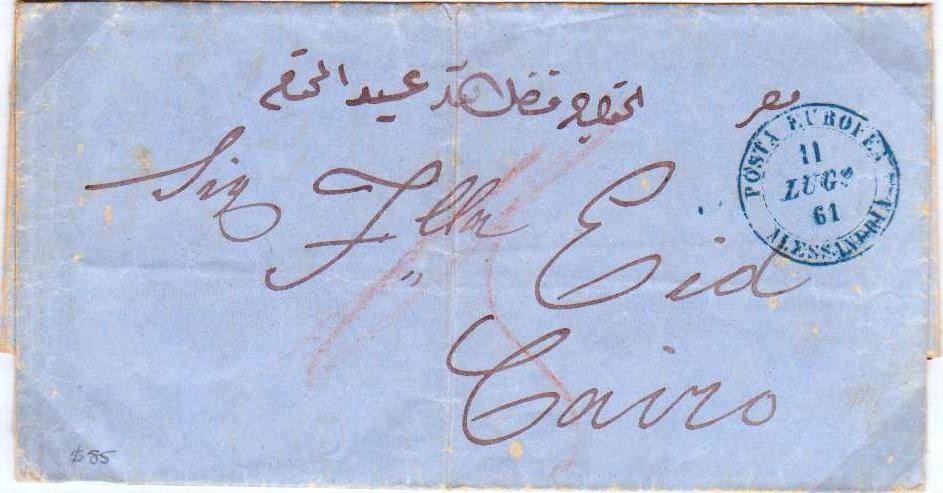 مصر
الخواجه فضل الله عيد المحترم
POSTA EUROPEA
11
LUG?
61
ALESSANDRIA
Sig
Eid
Cairo
$85